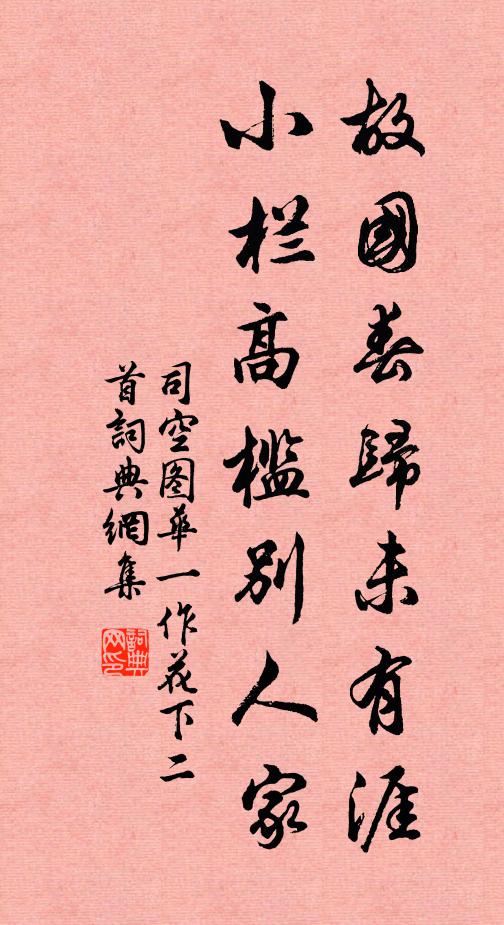 故國春歸未有涯
小栏高檻别人家
司空图華一作花下二
首詞典網集
詞典网印